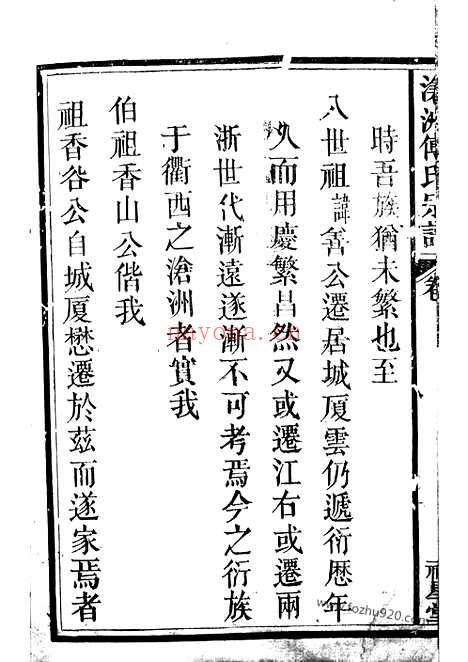 滄洲傅氏宗譜
卷
時吾族猶未繁也至
八世祖諱善公遷居城厦雲仍遞衍歷年
久而用慶繁昌然又或遷江右或遷兩
浙世代漸遠遂漸不可考焉今之衍族
于衢西之滄洲者實我
伯祖香山公偕我
祖香谷公自城厦懋遷於茲而遂家焉者
nayona.cn
www.fozhu920.com